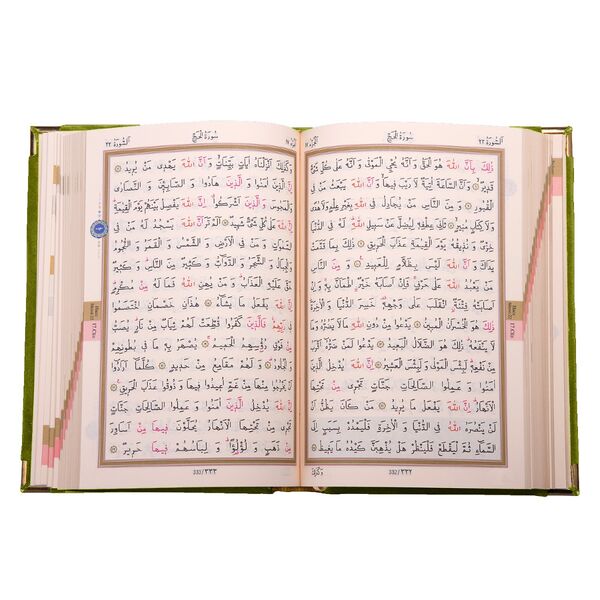 اَلسُّورَةُ ٢٢
سُورَةُ الْحَجِّ
ذٰلِكَ بِاَنَّ اللّٰهَ هُوَ الْحَقُّ وَ اَنَّهُ يُحْيِ الْمَوْتٰى وَ اَنَّهُ عَلٰى كُلِّ شَيْءٍ
قَدِيرٌ ۝ وَ اَنَّ السَّاعَةَ اٰتِيَةٌ لَا رَيْبَ فِيهَا وَ اَنَّ اللّٰهَ يَبْعَثُ مَنْ فِي
الْقُبُورِ ۝ وَ مِنَ النَّاسِ مَنْ يُجَادِلُ فِي اللّٰهِ بِغَيْرِ عِلْمٍ وَلَا هُدًى
وَلَا كِتَابٍ مُنِيرٍ ۝ ثَانِيَ عِطْفِهِ لِيُضِلَّ عَنْ سَبِيلِ اللّٰهِ لَهُ فِي الدُّنْيَا
خِزْيٌ وَ نُذِيقُهُ يَوْمَ الْقِيٰمَةِ عَذَابَ الْحَرِيقِ ۝ ذٰلِكَ بِمَا قَدَّمَتْ
يَدَاكَ وَ اَنَّ اللّٰهَ لَيْسَ بِظَلَّامٍ لِلْعَبِيدِ ۝ وَ مِنَ النَّاسِ مَنْ يَعْبُدُ
اللّٰهَ عَلٰى حَرْفٍ فَاِنْ اَصَابَهُ خَيْرٌ اطْمَاَنَّ بِهِ وَ اِنْ
اَصَابَتْهُ فِتْنَةٌ انْقَلَبَ عَلٰى وَجْهِهِ خَسِرَ الدُّنْيَا وَ الْاٰخِرَةَ
ذٰلِكَ هُوَ الْخُسْرَانُ الْمُبِينُ ۝ يَدْعُوا مِنْ دُونِ اللّٰهِ مَا لَا يَضُرُّهُ وَ مَا
لَا يَنْفَعُهُ ذٰلِكَ هُوَ الضَّلَالُ الْبَعِيدُ ۝ يَدْعُوا لَمَنْ ضَرُّهُ اَقْرَبُ
مِنْ نَفْعِهِ لَبِئْسَ الْمَوْلٰى وَ لَبِئْسَ الْعَشِيرُ ۝ اِنَّ اللّٰهَ يُدْخِلُ
الَّذِينَ اٰمَنُوا وَ عَمِلُوا الصَّالِحَاتِ جَنَّاتٍ تَجْرِي مِنْ تَحْتِهَا
الْاَنْهَارُ اِنَّ اللّٰهَ يَفْعَلُ مَا يُرِيدُ ۝ مَنْ كَانَ يَظُنُّ اَنْ لَنْ
يَنْصُرَهُ اللّٰهُ فِي الدُّنْيَا وَ الْاٰخِرَةِ فَلْيَمْدُدْ بِسَبَبٍ اِلَى
السَّمَاءِ ثُمَّ لْيَقْطَعْ فَلْيَنْظُرْ هَلْ يُذْهِبَنَّ كَيْدُهُ مَا يَغِيظُ ۝
332/٣٣٢
وَكَذٰلِكَ
17.Cüz
سُورَةُ الْحَجِّ
اَلسُّورَةُ ٢٢
وَ كَذٰلِكَ اَنْزَلْنَاهُ اٰيَاتٍ بَيِّنَاتٍ وَ اَنَّ اللّٰهَ يَهْدِي مَنْ يُرِيدُ ۝
اِنَّ الَّذِينَ اٰمَنُوا وَ الَّذِينَ هَادُوا وَ الصَّابِئِينَ وَ النَّصَارٰى
وَ الْمَجُوسَ وَ الَّذِينَ اَشْرَكُوا اِنَّ اللّٰهَ يَفْصِلُ بَيْنَهُمْ يَوْمَ الْقِيٰمَةِ
اِنَّ اللّٰهَ عَلٰى كُلِّ شَيْءٍ شَهِيدٌ ۝ اَلَمْ تَرَ اَنَّ اللّٰهَ يَسْجُدُ لَهُ مَنْ فِي
السَّمٰوَاتِ وَ مَنْ فِي الْاَرْضِ وَ الشَّمْسُ وَ الْقَمَرُ وَ النُّجُومُ
وَ الْجِبَالُ وَ الشَّجَرُ وَ الدَّوَابُّ وَ كَثِيرٌ مِنَ النَّاسِ وَ كَثِيرٌ
حَقَّ عَلَيْهِ الْعَذَابُ وَ مَنْ يُهِنِ اللّٰهُ فَمَا لَهُ مِنْ مُكْرِمٍ
اِنَّ اللّٰهَ يَفْعَلُ مَا يَشَاءُ ۝ هٰذَانِ خَصْمَانِ اخْتَصَمُوا
فِي رَبِّهِمْ فَالَّذِينَ كَفَرُوا قُطِّعَتْ لَهُمْ ثِيَابٌ مِنْ نَارٍ يُصَبُّ
مِنْ فَوْقِ رُؤُسِهِمُ الْحَمِيمُ ۝ يُصْهَرُ بِهِ مَا فِي بُطُونِهِمْ
وَ الْجُلُودُ ۝ وَ لَهُمْ مَقَامِعُ مِنْ حَدِيدٍ ۝ كُلَّمَا اَرَادُوا
اَنْ يَخْرُجُوا مِنْهَا مِنْ غَمٍّ اُعِيدُوا فِيهَا وَ ذُوقُوا عَذَابَ الْحَرِيقِ ۝
اِنَّ اللّٰهَ يُدْخِلُ الَّذِينَ اٰمَنُوا وَ عَمِلُوا الصَّالِحَاتِ جَنَّاتٍ
تَجْرِي مِنْ تَحْتِهَا الْاَنْهَارُ يُحَلَّوْنَ فِيهَا مِنْ اَسَاوِرَ
مِنْ ذَهَبٍ وَ لُؤْلُؤًا وَ لِبَاسُهُمْ فِيهَا حَرِيرٌ ۝
333/٣٣٣
17.Cüz